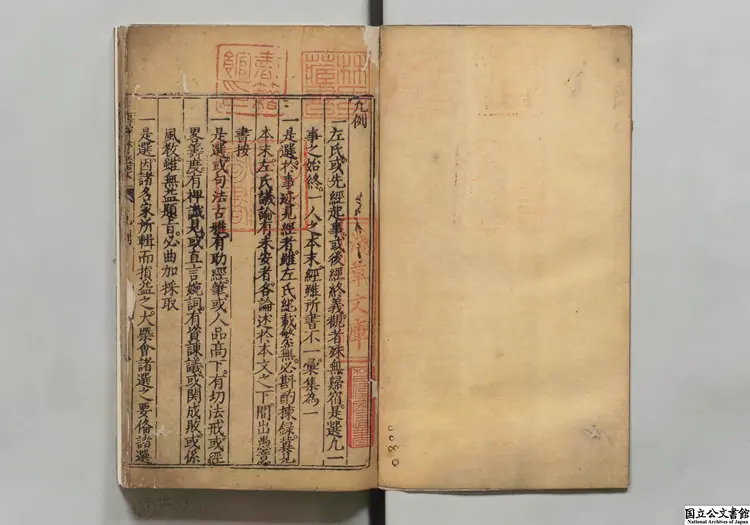 凡例
一左氏或先經起事或後經終義觀者殊無歸宿是選凡一
事之始終一人之本末經雖所書不一彙集為一
一是選於事迹見經者雖左氏紀載繁無必斟酌揀録冀見
本末左氏議論有未安者各論述於本文之下間出愚意
書按
一是選或句法古雅有助經筆或人品高下有切法戒或經
畧籌度有裨識見或直言婉詞有資諌議或関成敗或係
風教雖無益題旨必曲加採取
一是選因諸名家所輯而損益之大槩會諸選之要脩諸選
凡例
書籍館印
淺草文庫
国立公文書館
National Archives of Japan